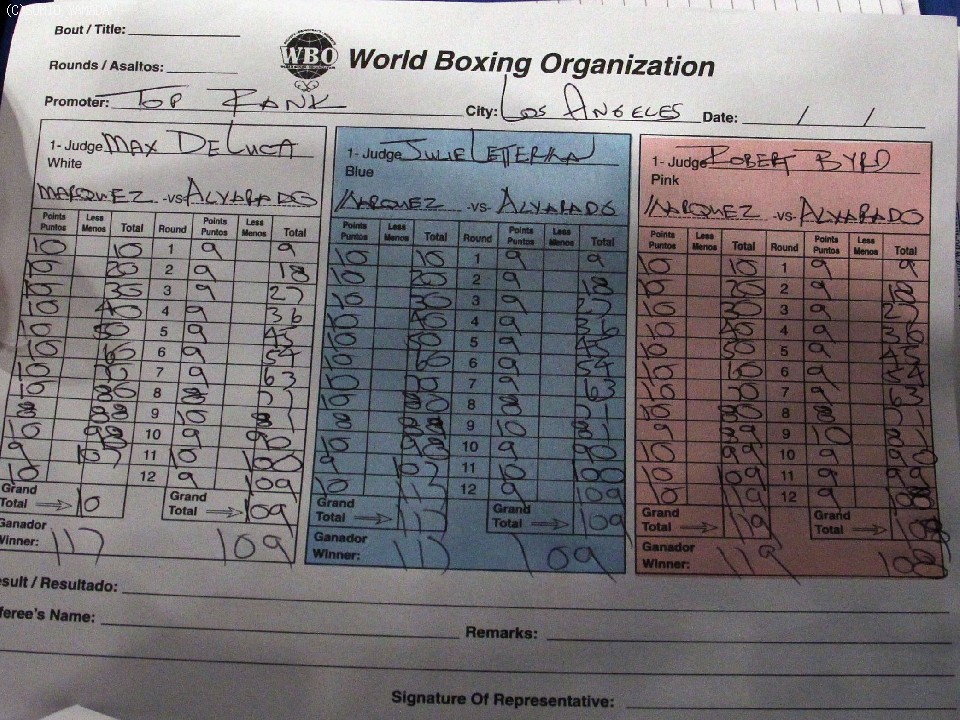 Bout / Title:
WBO World Boxing Organization
Rounds / Asaltos:
Promoter: TOP RANK City: LOS ANGELES Date: / /
1- Judge MAX DELUCA
White
MARQUEZ -vs- ALVARADO
Points Puntos Less Menos Total Round Points Puntos Less Menos Total
10 10 1 9 9
10 20 2 9 18
10 30 3 9 27
10 40 4 9 36
10 50 5 9 45
10 60 6 9 54
10 70 7 9 63
10 80 8 8 71
8 88 9 10 81
10 98 10 9 90
9 107 11 10 100
10 12 9 109
Grand Total 10 Grand Total 109
Ganador
Winner: 117 109
1- Judge JULIE LETTERMAN
Blue
MARQUEZ -vs- ALVARADO
Points Puntos Less Menos Total Round Points Puntos Less Menos Total
10 10 1 9 9
10 20 2 9 18
10 30 3 9 27
10 40 4 9 36
10 50 5 9 45
10 60 6 9 54
10 70 7 9 63
10 80 8 8 71
8 88 9 10 81
10 98 10 9 90
9 107 11 10 100
10 117 12 9 109
Grand Total 117 Grand Total 109
Ganador
Winner: 117 109
1- Judge ROBERT BYRD
Pink
MARQUEZ -vs- ALVARADO
Points Puntos Less Menos Total Round Points Puntos Less Menos Total
10 10 1 9 9
10 20 2 9 18
10 30 3 9 27
10 40 4 9 36
10 50 5 9 45
10 60 6 9 54
10 70 7 9 63
10 80 8 8 71
9 89 9 10 81
10 99 10 9 90
10 109 11 9 99
10 119 12 9 108
Grand Total 119 Grand Total 108
Ganador
Winner: 119 108
sult / Resultado:
feree's Name:
Remarks:
Signature Of Representative: